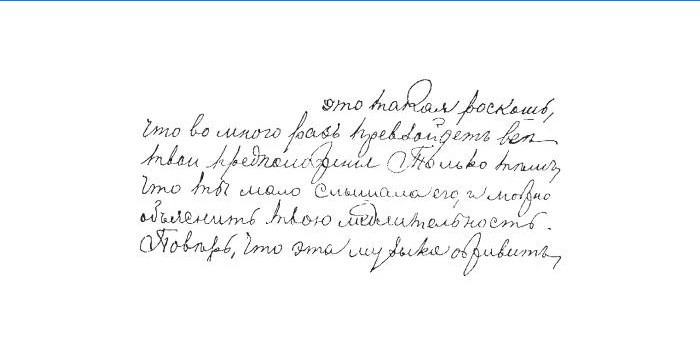 это такая роскошь,
что во много разъ превзойдетъ все
твои предположения Только тѣмъ,
что ты мало слышала его, и можно
объяснить твою медлительность.
Повѣрь, что эта музыка оживитъ,